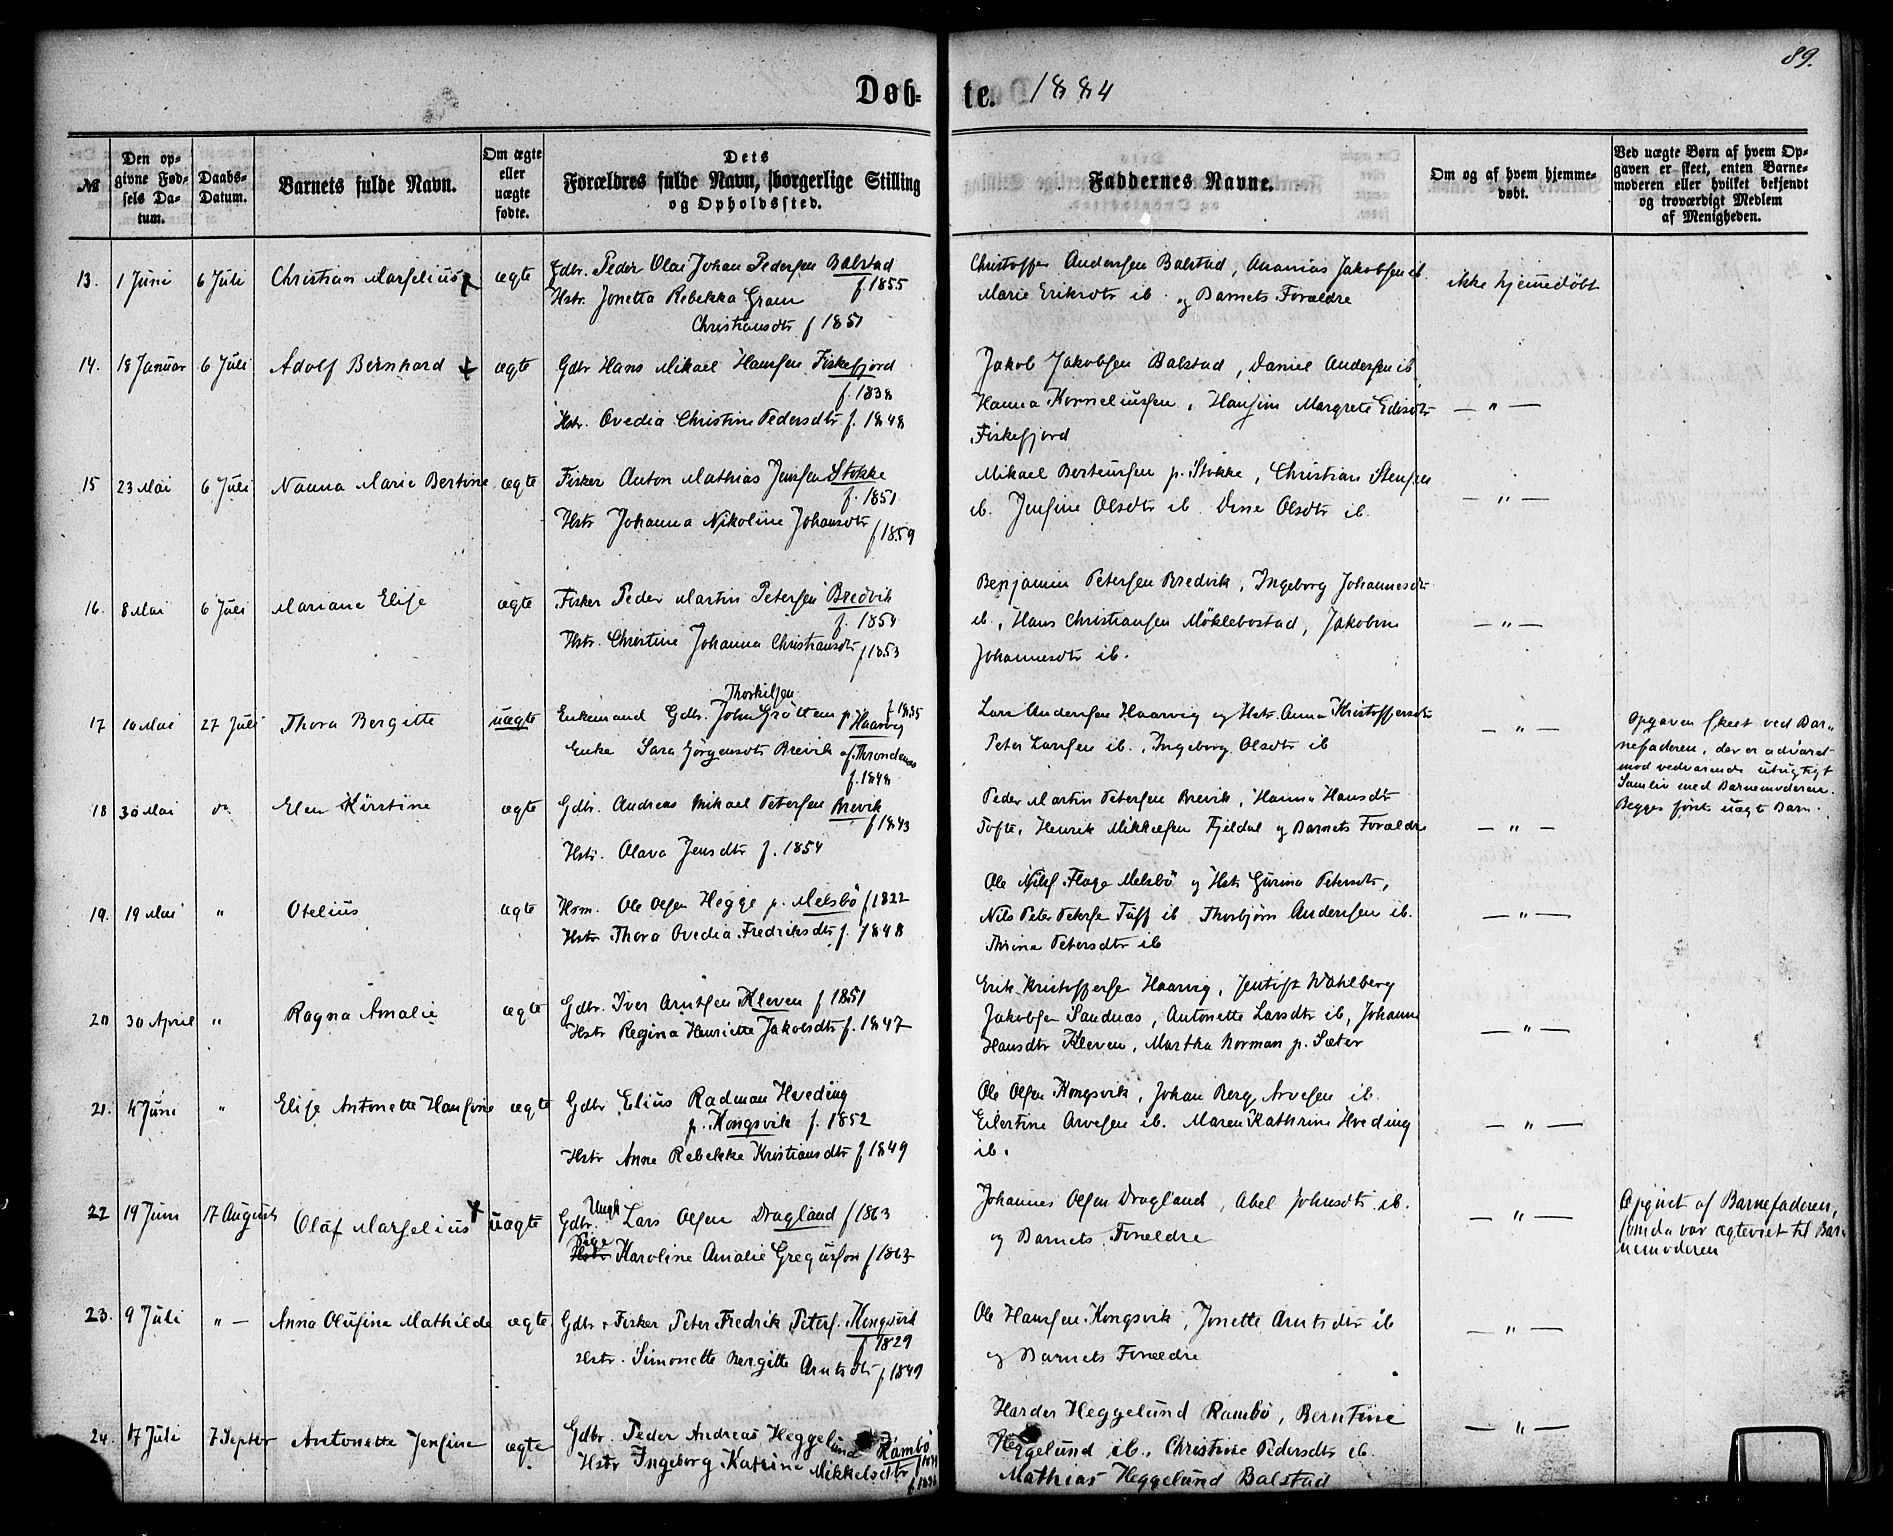 89.
Døb-
te. 1884
№
Den op-
givne Fød-
sels Da-
tum.
Daabs-
Datum.
Barnets fulde Navn.
Om ægte
eller
uægte
fødte.
Dets
Forældres fulde Navn, borgerlige Stilling
og Opholdssted.
Faddernes Navne.
Om og af hvem hjemme-
døbt.
Ved uægte Børn af hvem Op-
gaven er skeet, enten Barne-
moderen eller hvilket bekjendt
og troværdigt Medlem
af Menigheden.
13. 1 Juni 6 Juli Christian Marselius ægte
Gdbr. Peder Olai Johan Pedersen Balstad
f. 1855
Hstr. Jonetta Rebekka Gram
Christiansdtr f 1851
Christoffer Andersen Balstad, Ananias Jakobsen ib.
Marie Eriksdtr ib. og Barnets Forældre
ikke hjemmedøbt
14. 18 Januar 6 Juli Adolf Bernhard ægte
Gdbr Hans Mikael Hansen Fiskefjord
f. 1838
Hstr. Ovedia Christine Pedersdtr f. 1848
Jakob Jakobsen Balstad, Daniel Andersen ib.
Hanna Korneliussen, Hansine Margrete Edisdtr
Fiskefjord
— " —
15 23 Mai 6 Juli Nanna Marie Bertine ægte
Fisker Anton Mathias Jensen Stokke
f. 1851
Hstr Johanna Nikoline Johansdtr
f 1859
Mikael Berteussen p. Stokke, Christian Stensen
ib. Jensine Olsdtr ib. Dine Olsdtr ib.
— " —
16. 8 Mai 6 Juli Mariane Elise ægte
Fisker Peder Martin Petersen Bredvik
f. 1854
Hstr. Christine Johanna Christiansdtr f 1853
Benjamin Petersen Bredvik, Ingeborg Johannesdtr
ib., Hans Christiansen Møklebostad, Jakobine
Johannesdtr ib.
— " —
17 10 Mai 27 Juli Thora Bergitte uægte
Thorkilsen
Enkemand Gdbr. John Grøttem p Haarvig
f. 1835
Enke Sara Jørgensdtr Brevik af Throndenæs
f. 1848
Lars Andersen Haarvig og Hstr. Anna Kristoffersdtr
Peter Larsen ib., Ingeborg Olsdtr ib
— " —
Opgaven skeet ved Bar-
nefaderen, der er advaret
mod vedvarende utugtigt
Samliv med Barnemoderen.
Begges første uægte Barn.
18 30 Mai do Elen Kirstine ægte
Gdbr. Andreas Mikael Petersen Brevik
f 1843
Hstr. Olava Jensdtr f. 1854
Peder Martin Petersen Brevik, Hanna Hansdtr
Tofte, Henrik Mikkelsen Fjeldal og Barnets Forældre
— " —
19. 19 Mai " Otelius ægte
Hsm. Ole Olsen Hegge p. Melsbö f 1822
Hstr Thora Ovedia Fredriksdtr f. 1848
Ole Nilsf. Flage Melsbö og Hstr Gurina Petersdtr,
Nils Peter Peterse Tuff ib Thorbjørn Andersen ib.
Thrina Petersdtr ib
— " —
20 30 April " Ragna Amalie ægte
Gdbr. Iver Arntsen Kleven f 1851
Hstr Regina Henriette Jakobsdtr f. 1847
Erik Kristofferse Haarvig, Wahlberg
Jakobsen Sandnæs, Antonette Larsdtr ib, Johanne
Hansdtr Kleven, Martha Norman p. Sæter
— " —
21. 4 Juni " Elise Antonette Hansine ægte
Gdbr Elius Radman Hveding
p. Kongsvik f. 1852
Hstr Anne Rebekke Kristiansdtr f 1849
Ole Olsen Kongsvik, Johan Berg Arvesen ib.
Eilertine Arvesen ib. Maren Kathrine Hveding
ib.
— " —
22 19 Juni 17 August Olaf Marselius uægte
Ungk
Gdbr. Lars Olsen Dragland f 1863
Pige
Hstr Karoline Amalie Gregusson f 1863
Johannes Olsen Dragland, Abel Johnsdtr ib.
og Barnets Forældre
— " —
Opgivet af Barnefaderen,
som da var ægteviet til Bar-
nemoderen
23. 9 Juli " — Anna Olusine Mathilde ægte
Gdbr + Fisker Peter Fredrik Peters. Kongsvik
f 1829
Hstr. Simonette Bergitte Arntsdtr f 1849
Ole Hansen Kongsvik, Jonette Arntsdtr ib
og Barnets Forældre
— " —
24. 17 Juli 7 Septbr Antonette Jensine ægte
Gdbr. Peder Andreas Heggelund Rambö
Hstr Ingeborg Katrine Mikkelsdtr
Harder Heggelund Rambö, Berntine
Heggelund ib. Christine Pedersdtr ib.
Mathias Heggelund Balstad
— " —